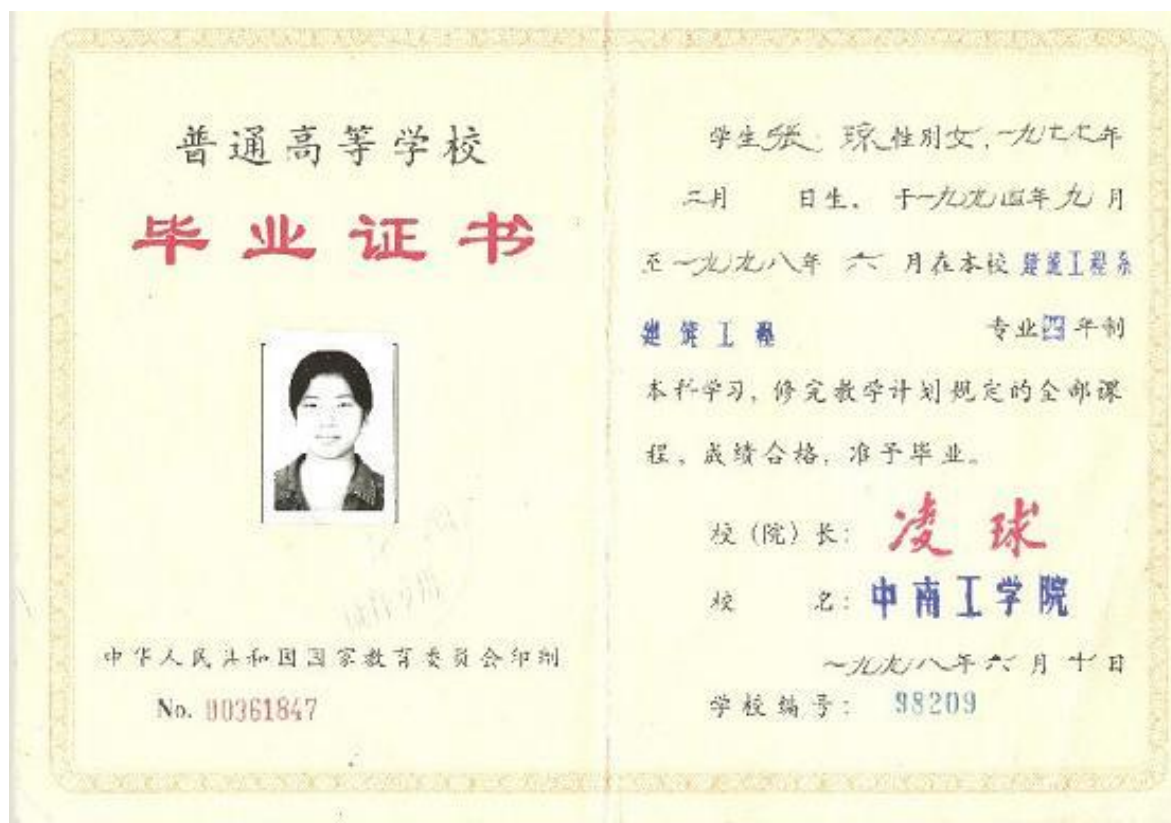 普通高等学校
毕业证书
中华人民共和国国家教育委员会印制
No. 00361847
学生张琼性别女,一九七七年
二月 日生,于一九九四年九月
至一九九八年 六 月在本校 建筑工程系
建筑工程 专业四年制
本科学习,修完教学计划规定的全部课
程,成绩合格,准予毕业。
校(院)长: 凌球
校 名: 中南工学院
一九九八年六月十日
学校编号: 98209